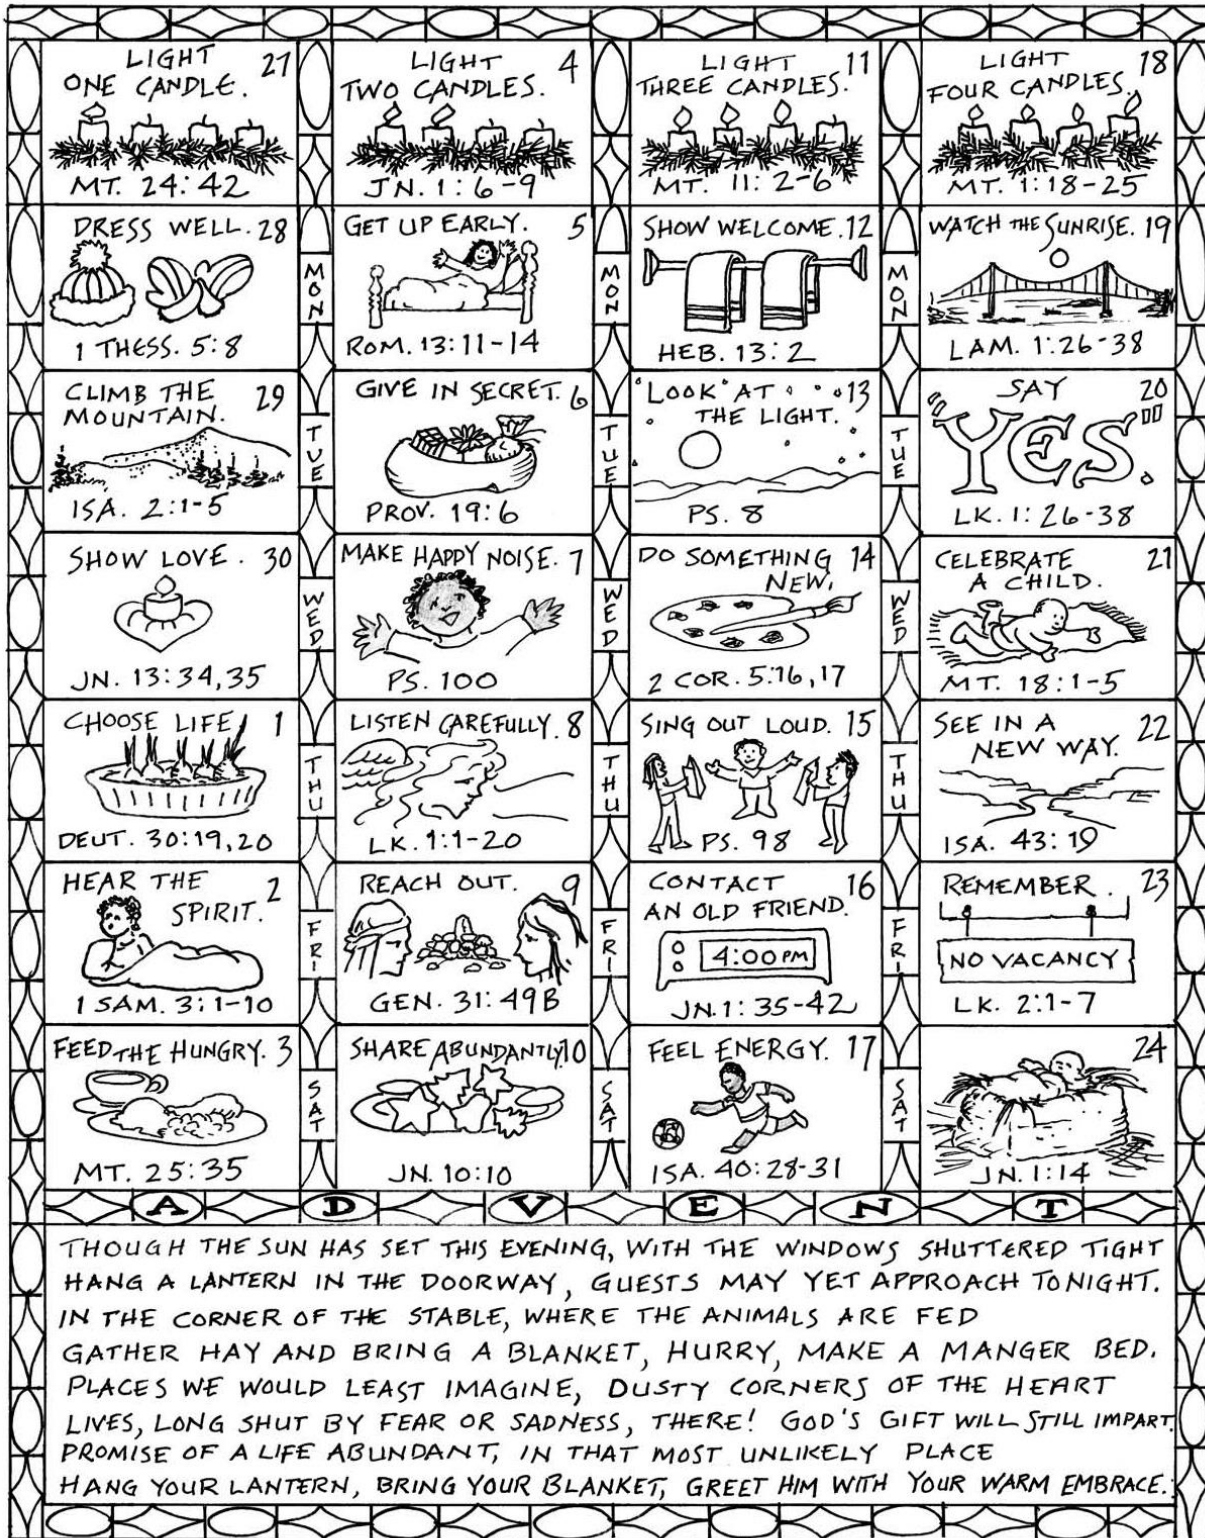 LIGHT 27
ONE CANDLE.
MT. 24:42
LIGHT 4
TWO CANDLES.
JN. 1:6-9
LIGHT 11
THREE CANDLES.
MT. 11:2-6
LIGHT 18
FOUR CANDLES.
MT. 1:18-25
DRESS WELL. 28
1 THESS. 5:8
MON
GET UP EARLY. 5
ROM. 13:11-14
MON
SHOW WELCOME. 12
HEB. 13:2
MON
WATCH THE SUNRISE. 19
LAM. 1:26-38
CLIMB THE 29
MOUNTAIN.
ISA. 2:1-5
TUE
GIVE IN SECRET. 6
PROV. 19:6
TUE
"LOOK" AT 13
THE LIGHT.
PS. 8
TUE
SAY 20
"YES".
LK. 1:26-38
SHOW LOVE. 30
JN. 13:34,35
WED
MAKE HAPPY NOISE. 7
PS. 100
WED
DO SOMETHING 14
NEW.
2 COR. 5:16,17
WED
CELEBRATE 21
A CHILD.
MT. 18:1-5
CHOOSE LIFE 1
DEUT. 30:19,20
THU
LISTEN CAREFULLY. 8
LK. 1:1-20
THU
SING OUT LOUD. 15
PS. 98
THU
SEE IN A 22
NEW WAY.
ISA. 43:19
HEAR THE 2
SPIRIT.
1 SAM. 3:1-10
FRI
REACH OUT. 9
GEN. 31:49B
FRI
CONTACT 16
AN OLD FRIEND.
4:00 PM
JN. 1:35-42
FRI
REMEMBER. 23
NO VACANCY
LK. 2:1-7
FEED THE HUNGRY. 3
MT. 25:35
SAT
SHARE ABUNDANTLY. 10
JN. 10:10
SAT
FEEL ENERGY. 17
ISA. 40:28-31
SAT
24
JN. 1:14
ADVENT
THOUGH THE SUN HAS SET THIS EVENING, WITH THE WINDOWS SHUTTERED TIGHT
HANG A LANTERN IN THE DOORWAY, GUESTS MAY YET APPROACH TONIGHT.
IN THE CORNER OF THE STABLE, WHERE THE ANIMALS ARE FED
GATHER HAY AND BRING A BLANKET, HURRY, MAKE A MANGER BED.
PLACES WE WOULD LEAST IMAGINE, DUSTY CORNERS OF THE HEART
LIVES, LONG SHUT BY FEAR OR SADNESS, THERE! GOD'S GIFT WILL STILL IMPART
PROMISE OF A LIFE ABUNDANT, IN THAT MOST UNLIKELY PLACE
HANG YOUR LANTERN, BRING YOUR BLANKET, GREET HIM WITH YOUR WARM EMBRACE.